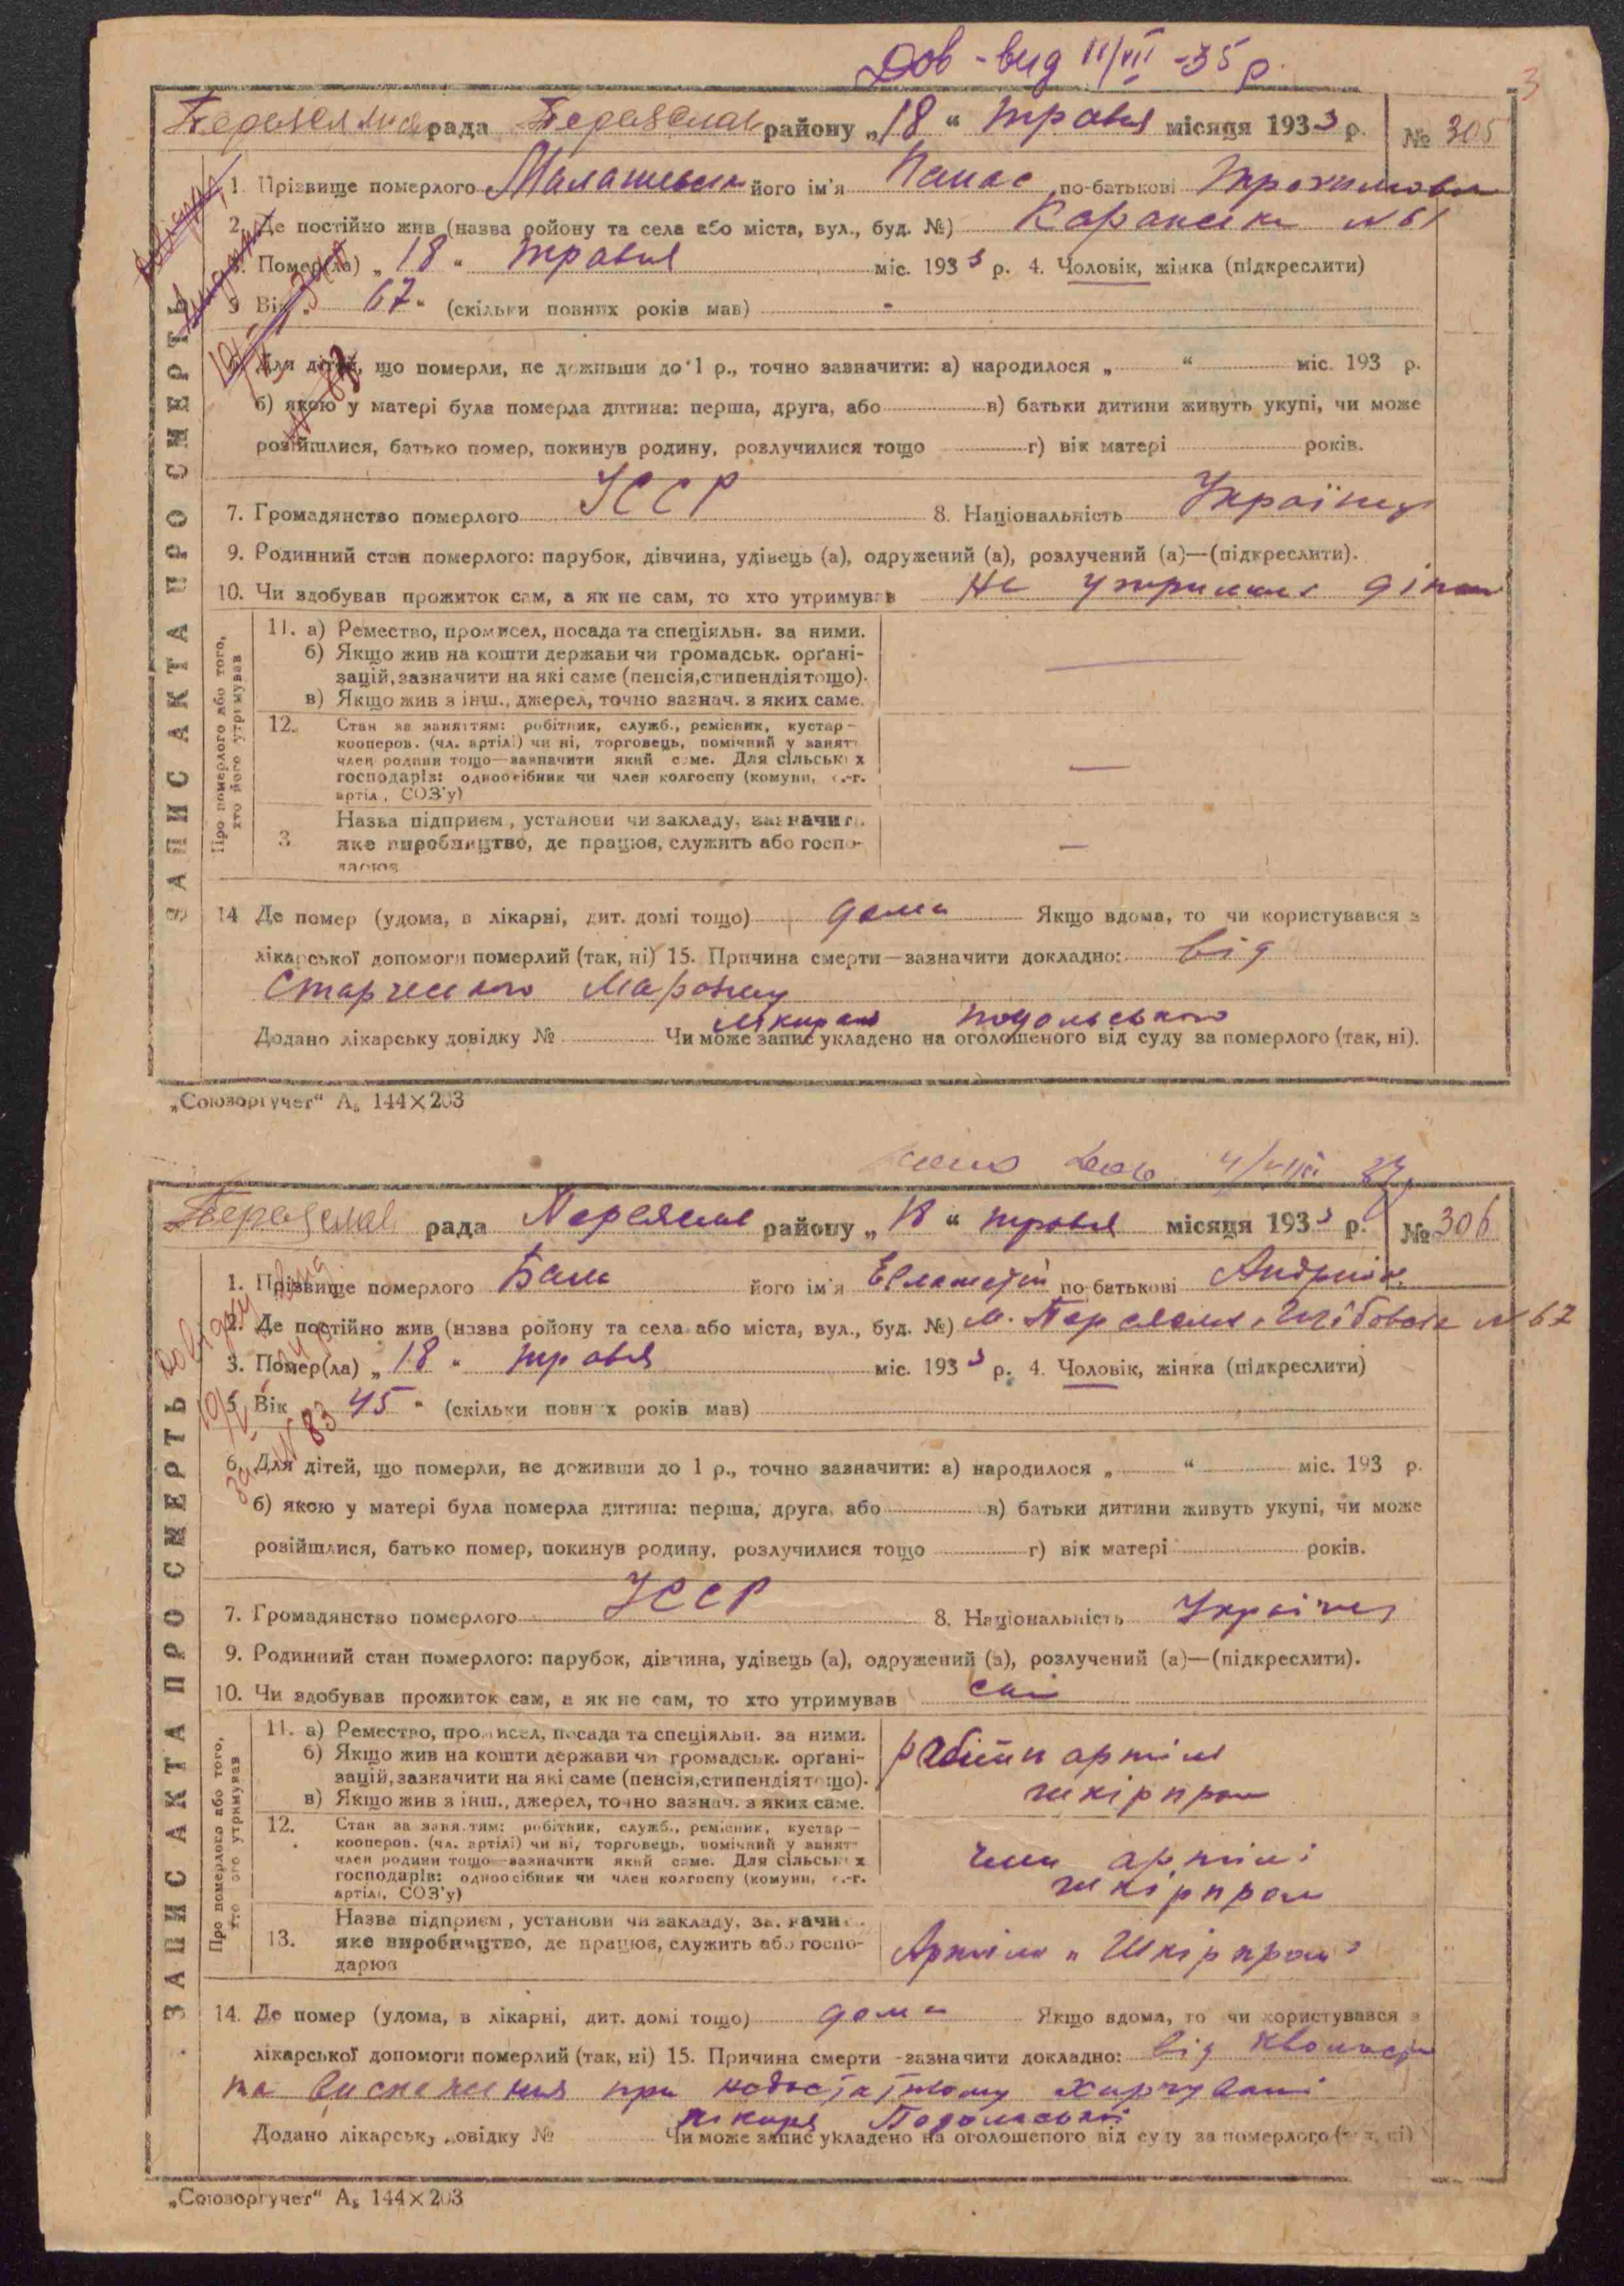 Дов - вид 11/VII - 35 р.
3
рада Переяслав району „18 “ травня місяця 1933 р. № 305
ЗАПИС АКТА ПРО СМЕРТЬ
1. Прізвище померлого його ім'я Панас по-батькові Трохимович
2. Де постійно жив (назва району та села або міста, вул., буд. №) № 61
3. Помер(ла) „ 18 “ травня міс. 1933 р. 4. Чоловік, жінка (підкреслити)
5 Вік „ 67 “ (скільки повних років мав) -
6. Для дітей, що померли, не доживши до 1 р., точно зазначити: а) народилося „ “ міс. 193 р.
б) якою у матері була померла дитина: перша, друга, або в) батьки дитини живуть укупі, чи може
розійшлися, батько помер, покинув родину, розлучилися тощо г) вік матері років.
7. Громадянство померлого УССР 8. Національність Українець
9. Родинний стан померлого: парубок, дівчина, удівець (а), одружений (а), розлучений (а)—(підкреслити).
10. Чи здобував прожиток сам, а як не сам, то хто утримував На
Про померлого або того, хто його утримував
11. а) Ремество, промисел, посада та спеціяльн. за ними.
б) Якщо жив на кошти держави чи громадськ. орґані-
зацій, зазначити на які саме (пенсія, стипендія тощо).
в) Якщо жив з інш., джерел, точно зазнач. з яких саме.
12. Стан за заняттям: робітник, служб., ремісник, кустар —
кооперов. (чл. артілі) чи ні, торговець, помічний у занятт
член родини тощо—зазначити який саме. Для сільських
господарів: одноосібник чи член колгоспу (комуни, с.-г.
артіл., СОЗ'у)
3 Назва підприєм., установи чи закладу, зазначит.
яке виробництво, де працює, служить або госпо-
дарює
14 Де помер (удома, в лікарні, дит. домі тощо) дома Якщо вдома, то чи користувався з
лікарської допомоги померлий (так, ні) 15. Причина смерти—зазначити докладно: від
Старческого Маразму
Додано лікарську довідку № Чи може запис укладено на оголошеного від суду за померлого (так, ні).
„Союзоргучет“ А5 144×203
Переяслав рада Переяслав району „ 18 “ травня місяця 1933 р. № 306
ЗАПИС АКТА ПРО СМЕРТЬ
1. Прізвище померлого його ім'я по-батькові Андрійов.
2. Де постійно жив (назва району та села або міста, вул., буд. №) м. Переяслав, № 67
3. Помер(ла) „ 18 “ травня міс. 1933 р. 4. Чоловік, жінка (підкреслити)
5 Вік „ 45 “ (скільки повних років мав)
6. Для дітей, що померли, не доживши до 1 р., точно зазначити: а) народилося „ “ міс. 193 р.
б) якою у матері була померла дитина: перша, друга, або в) батьки дитини живуть укупі, чи може
розійшлися, батько помер, покинув родину, розлучилися тощо г) вік матері років.
7. Громадянство померлого УССР 8. Національність Українец
9. Родинний стан померлого: парубок, дівчина, удівець (а), одружений (а), розлучений (а)—(підкреслити).
10. Чи здобував прожиток сам, а як не сам, то хто утримував сам
Про померлого або того, хто його утримував
11. а) Ремество, промисел, посада та спеціяльн. за ними.
б) Якщо жив на кошти держави чи громадськ. орґані-
зацій, зазначити на які саме (пенсія, стипендія тощо).
в) Якщо жив з інш., джерел, точно зазнач. з яких саме.
робітн артілі
шкірпром
12. Стан за заняттям: робітник, служб., ремісник, кустар —
кооперов. (чл. артілі) чи ні, торговець, помічний у занятт
член родини тощо—зазначити який саме. Для сільських
господарів: одноосібник чи член колгоспу (комуни, с.-г.
артілі, СОЗ'у)
член артілі
шкірпром
13. Назва підприєм., установи чи закладу, зазначи
яке виробництво, де працює, служить або госпо-
дарює
Артіль „Шкірпром“
14. Де помер (удома, в лікарні, дит. домі тощо) дома Якщо вдома, то чи користувався з
лікарської допомоги померлий (так, ні) 15. Причина смерти -зазначити докладно: від кволости
та виснаження при недостатньому харчуванні
лікаря Подольській
Додано лікарську довідку № Чи може запис укладено на оголошеного від суду за померлого (так, ні)
„Союзоргучет“ А5 144×203